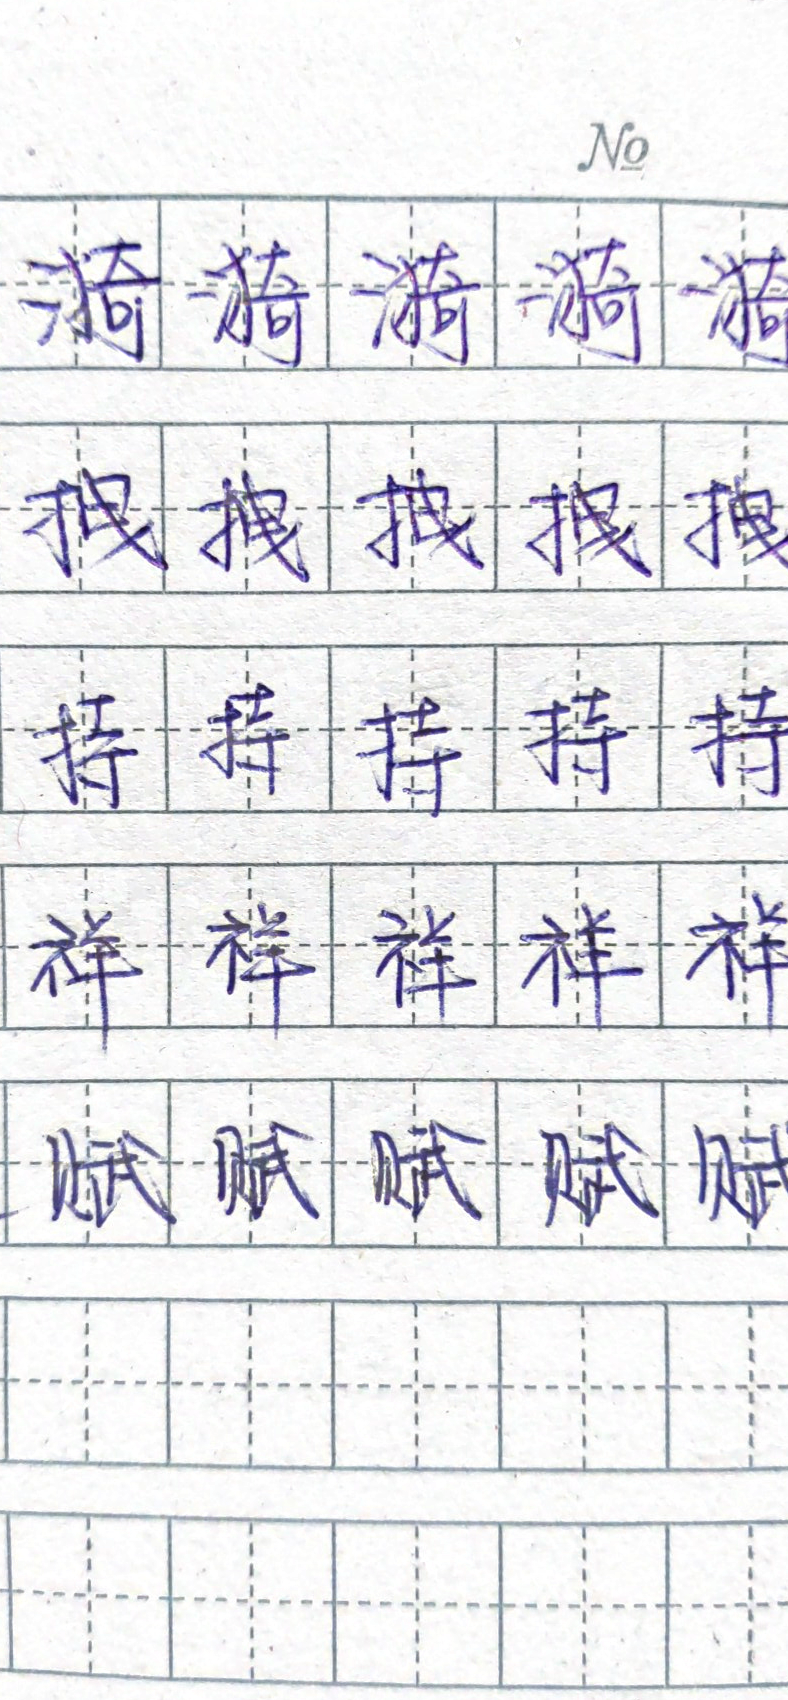 No
漪 漪 漪 漪 漪
拽 拽 拽 拽 拽
持 持 持 持 持
祥 祥 祥 祥 祥
赋 赋 赋 赋 赋